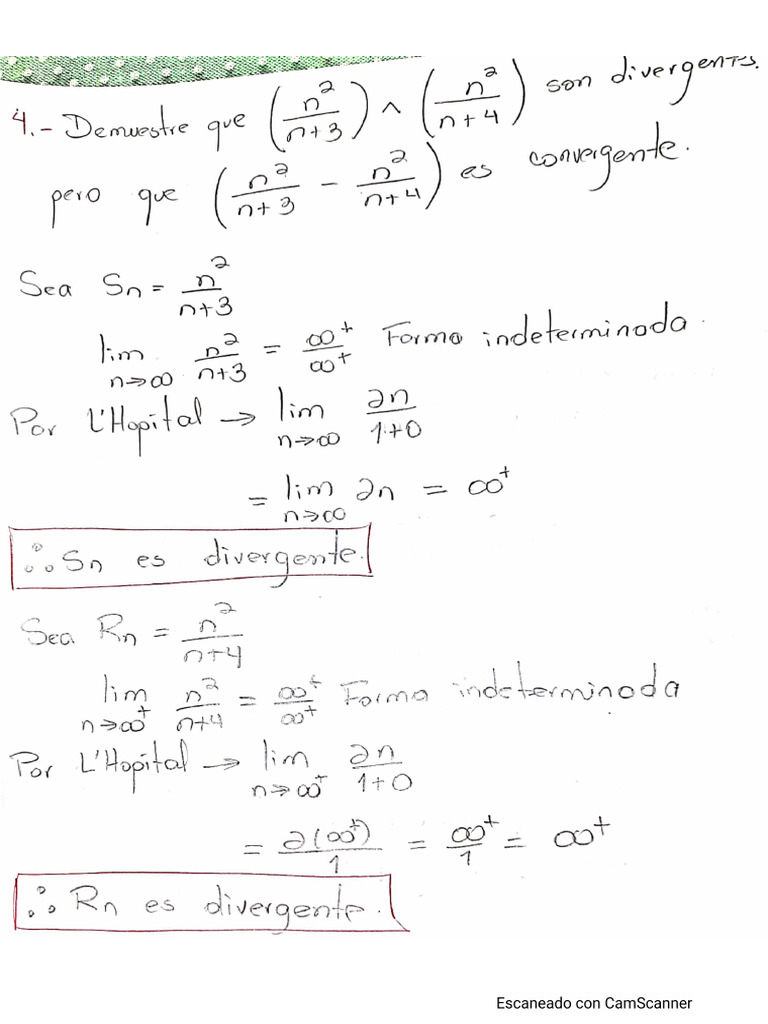 4.- Demuestre que (n²/n+3) ∧ (n²/n+4) son divergentes.
pero que (n²/n+3 - n²/n+4) es convergente.
Sea Sn = n²/n+3
lim n→∞ n²/n+3 = ∞⁺/∞⁺ Forma indeterminada.
Por L'Hopital → lim n→∞ 2n/1+0
= lim n→∞ 2n = ∞⁺
∴ Sn es divergente.
Sea Rn = n²/n+4
lim n→∞⁺ n²/n+4 = ∞⁺/∞⁺ Forma indeterminada
Por L'Hopital → lim n→∞⁺ 2n/1+0
= 2(∞⁺)/1 = ∞⁺/1 = ∞⁺
∴ Rn es divergente.
Escaneado con CamScanner